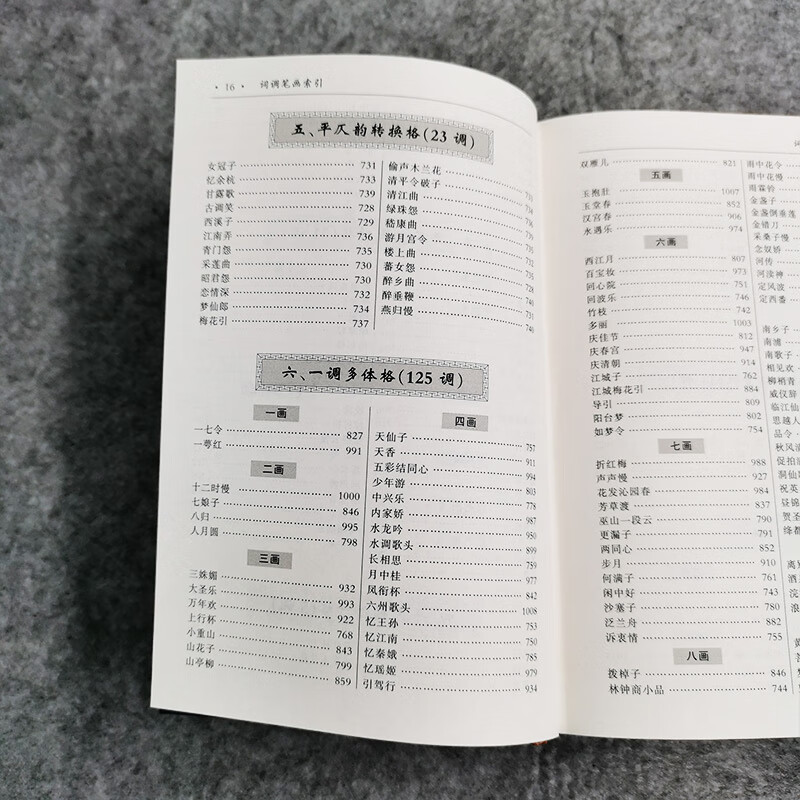 • 16 • 词调笔画索引
五、平仄韵转换格(23 调)
女冠子 731
忆余杭 733
甘露歌 739
古调笑 728
西溪子 729
江南弄 736
青门怨 735
采莲曲 730
昭君怨 730
恋情深 732
梦仙郎 734
梅花引 737
偷声木兰花
清平令破子
清江曲
绿珠怨
嵇康曲
游月宫令
楼上曲
蕃女怨
醉乡曲
醉垂鞭
燕归慢
六、一调多体格(125 调)
一画
一七令 827
一萼红 991
二画
十二时慢 1000
七娘子 846
八归 995
人月圆 798
三画
三姝媚 932
大圣乐 993
万年欢 922
上行杯 768
小重山 843
山花子 799
山亭柳 859
四画
天仙子 757
天香 911
五彩结同心 994
少年游 803
中兴乐 778
内家娇 997
水龙吟 944
水调歌头 900
长相思 771
月中桂 977
凤衔杯 842
六州歌头 1008
忆王孙 831
忆江南 750
忆秦娥 785
忆瑶姬 979
引驾行 934
双雁儿 821
五画
玉抱肚 1007
玉堂春 852
汉宫春 906
永遇乐 974
六画
西江月 807
百宝妆 973
回心院 751
回波乐 746
竹枝 742
多丽 1003
庆佳节 812
庆春宫 947
庆清朝 914
江城子 762
江城梅花引 884
导引 809
阳台梦 804
如梦令 754
七画
折红梅 988
声声慢 927
花发沁园春 964
芳草渡 837
巫山一段云 790
更漏子 791
两同心 852
步月 910
何满子 761
闲中好 743
沙塞子 780
泛兰舟 882
诉衷情 755
八画
拨棹子 846
林钟商小品 744
雨中花令
雨中花慢
雨霖铃
金盏子
金盏倒垂莲
金错刀
采桑子慢
念奴娇
河传
河渎神
定风波
定西番
南乡子
南浦
南歌子
相见欢
柳梢青
威仪辞
临江仙
思越人
品令
秋风清
促拍
洞仙
祝英
昼锦
贺圣
绛都